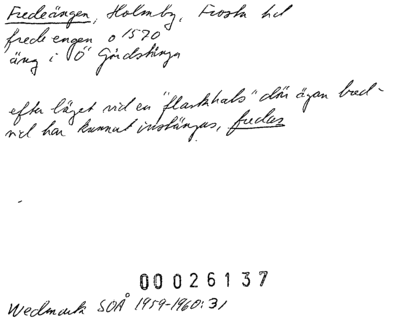 Fredeängen, Holmby, Frosta hd
fredeengen o 1570
äng i Ö Gårdstånga
efter läget vid en "flaskhals" där ägan bred-
vid har kunnat instängas, fredas
00026137
Wedmark SOÅ 1959-1960:31